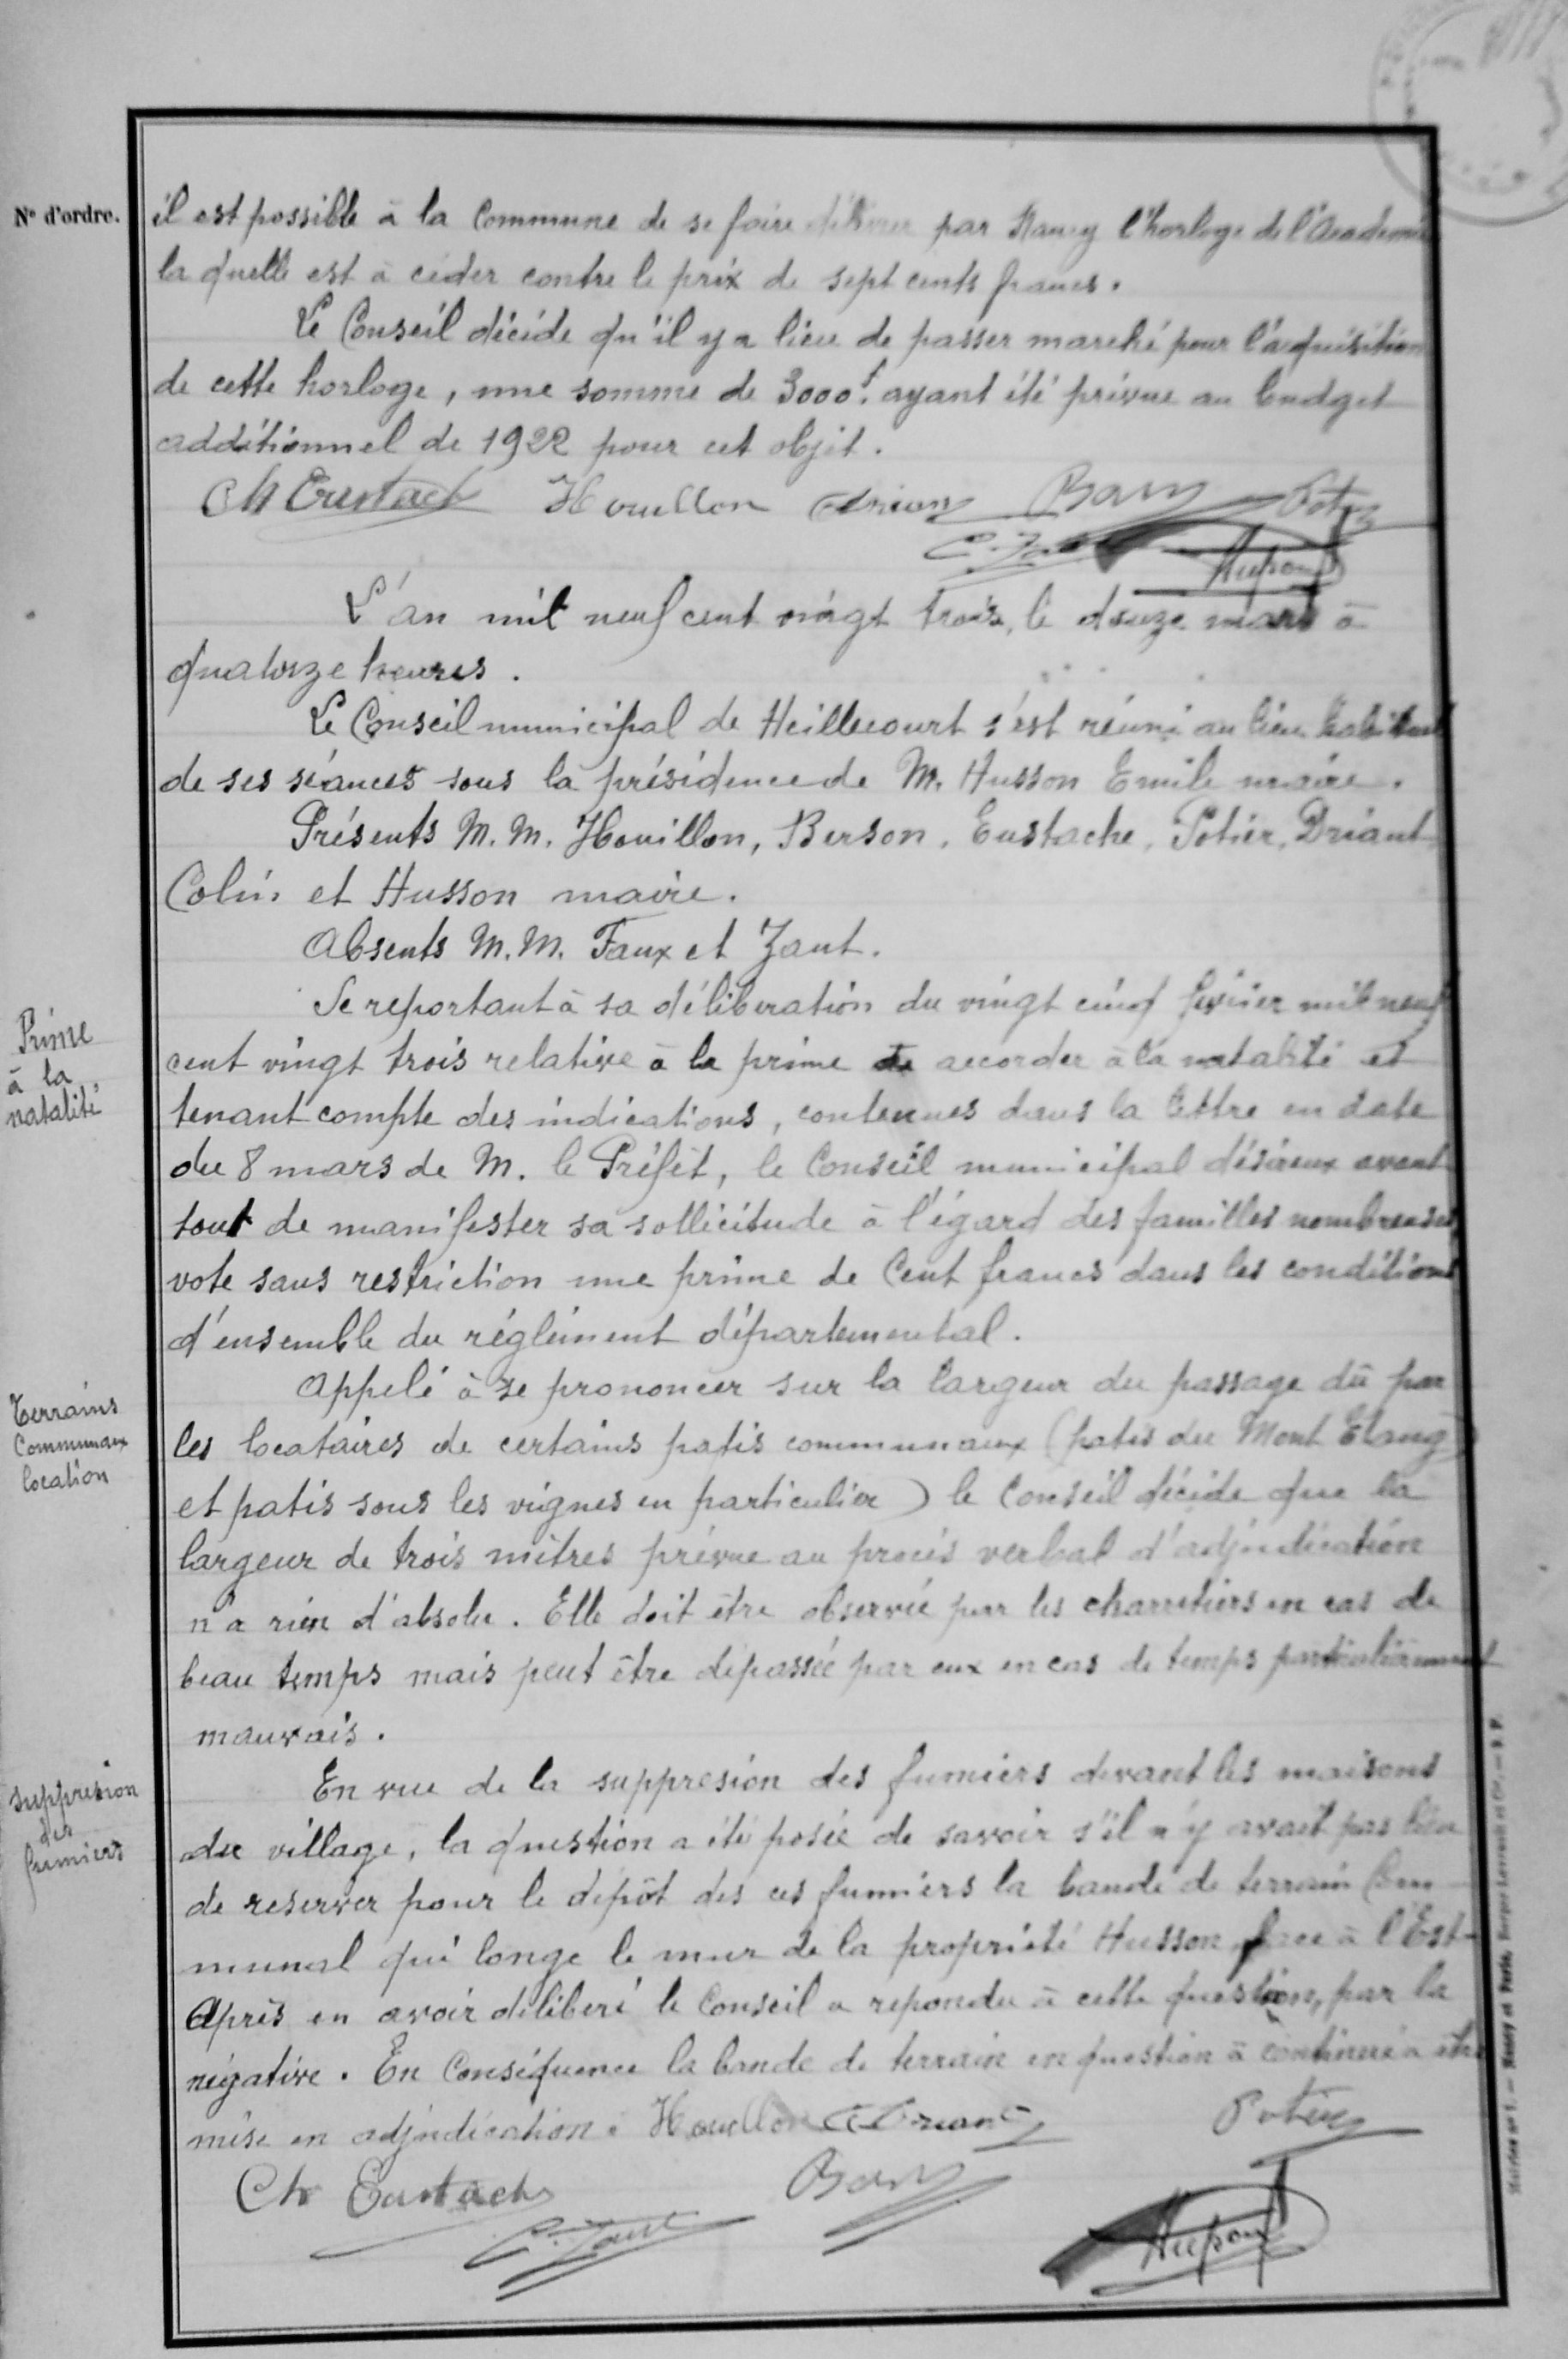 N° d'ordre.
il est possible à la Commune de se faire délivrer par Nancy l'horloge de l'Academie
la quelle est à céder contre le prix de sept cents francs.
Le Conseil décide qu'il y a lieu de passer marché pour l'aquisition
de cette horloge, une somme de 3000f. ayant été prévue au budget
additionnel de 1922 pour cet objet.
Ch Eustache Houillon Driant Potier
L'an mil neuf cent vingt trois, le douze mars à
quatorze heures.
Le Conseil municipal de Heillecourt s'est réuni au lieu habituel
de ses séances sous la présidence de M. Husson Emile maire.
Présents M. M. Houillon, Berson, Eustache, Potier, Driant
Colin et Husson maire.
Absents M. M. Faux et Zant.
Prime
à la
natalité
Se reportant à sa délibération du vingt cinq fevrier mil neuf
cent vingt trois relative à la prime accorder à la natalité et
tenant compte des indications, contenues dans la lettre en date
du 8 mars de M. le Préfèt, le Conseil municipal désireux avant
tout de manifester sa sollicitude à l'égard des familles nombreuses
vote sans restriction une prime de Cent francs dans les conditions
d'ensemble du réglement départemental.
Terrains
Communaux
location
Appelé à se prononcer sur la largeur du passage dû par
les locataires de certains patis communaux (patis du Mont Etang
et patis sous les vignes en particulier) le Conseil décide que la
largeur de trois mètres prévue au procès verbal d'adjudication
n'a rien d'absolu. Elle doit être observée par les charretiers en cas de
beau temps mais peut être dépassée par eux en cas de temps particulièrement
mauvais.
Suppresion
des
fumiers
En vue de la suppresion des fumiers devant les maisons
du village, la question a été posée de savoir s'il n'y avait pas lieu
de reserver pour le dépôt des ces fumiers la bande de terrain Com
munal qui longe le mur de la propriété Husson, face à l'Est-
Après en avoir délibéré le Conseil a repondu à cette question, par la
négative. En Conséquence la bande de terrain en question à continuer à être
mise en adjudication. Houillon Driant Potier
Ch Eustache
C. Zant
Husson